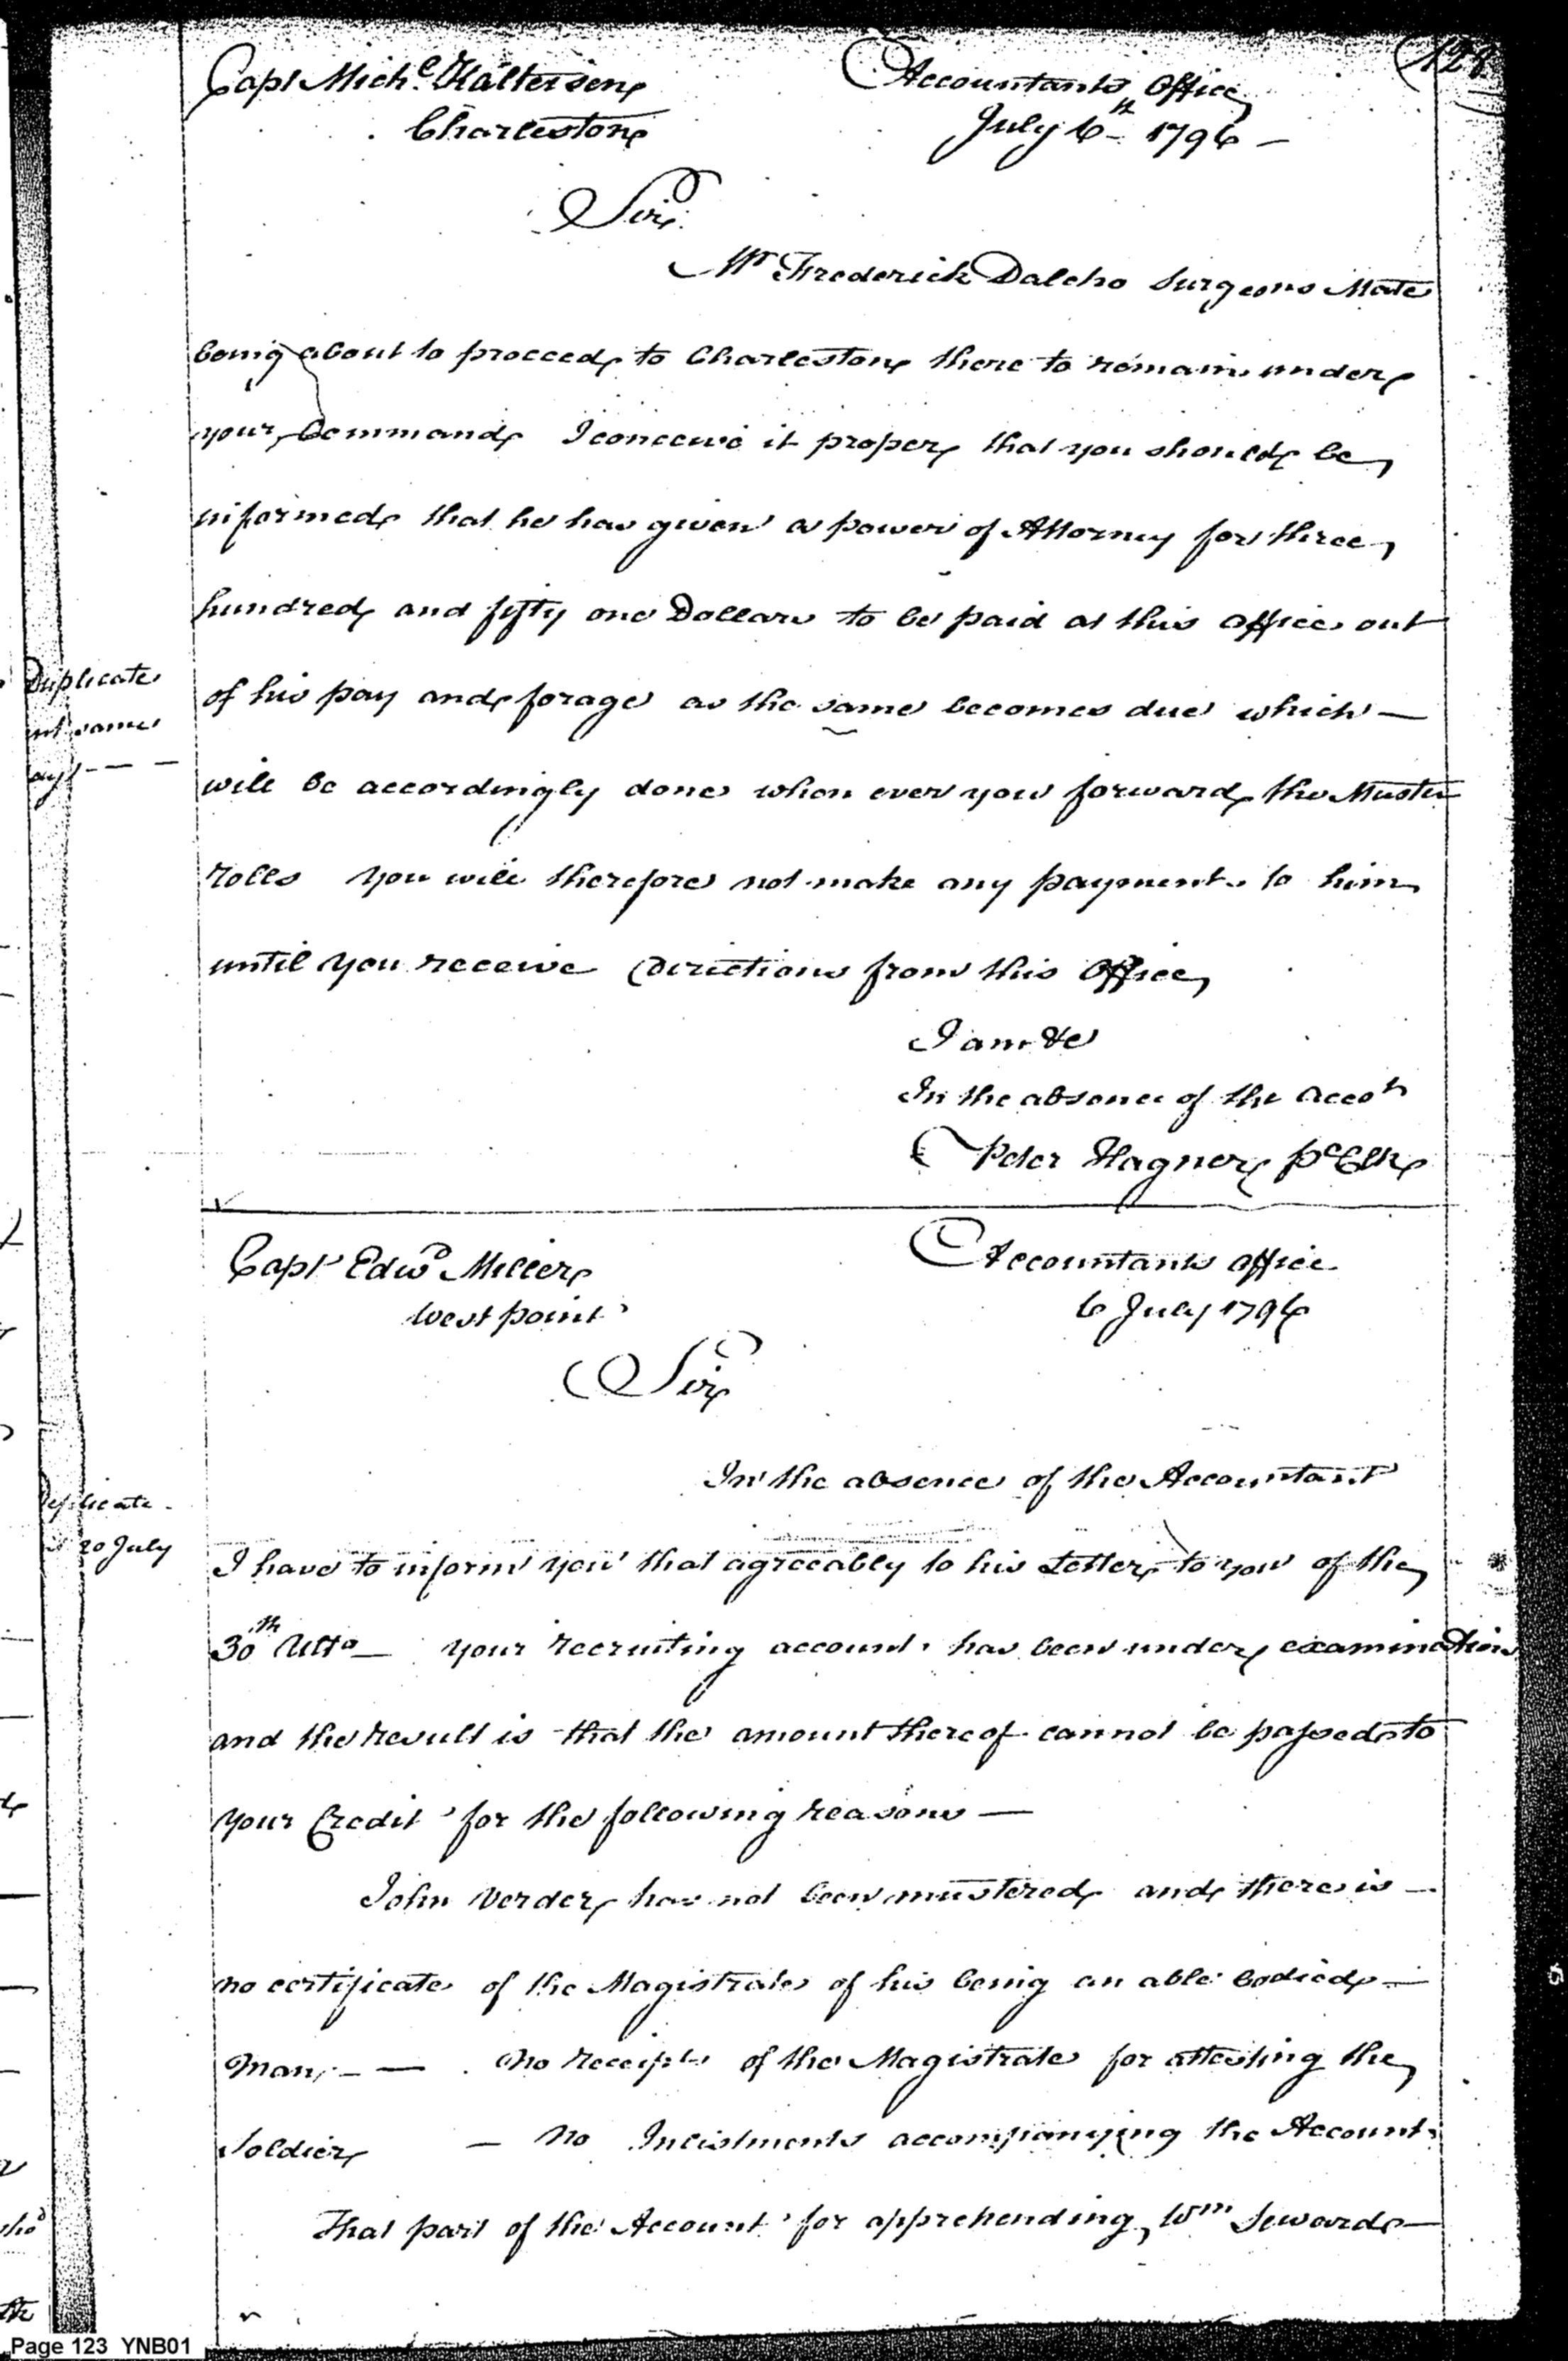 Capt Mich.l Kaltersen
Charleston
Accountants Office
July 6th 1796 —
Sir
Mr Frederick Dalcho Surgeons Mate
being about to proceed to Charleston there to remain under
your Command I conceive it proper that you should be
informed that he has given a power of Attorney for three
hundred and fifty one Dollars to be paid at this office out
of his pay and forage as the same becomes due which —
will be accordingly done when ever you forward the Muster
rolls you will therefore not make any payments to him
until you receive Directions from this Office
I am &c
In the absence of the Accot
Peter Hagner pl Clk
Duplicate
same
day
Capt Edwd Miller
West point
Accountants office
6 July 1796
Sir
In the absence of the Accountant
I have to inform you that agreeably to his Letter to you of the
30th Ulto — your recruiting account has been under examination
and the result is that the amount thereof cannot be passed to
your Credit for the following reasons —
John Verder has not been mustered and there is —
no certificate of the Magistrate of his being an able bodied —
man — — no receipts of the Magistrate for attesting the
Soldier — no Inlistments accompanying the Account
That part of the Account for apprehending Wm Seward —
Duplicate
20 July
Page 123 YNB01